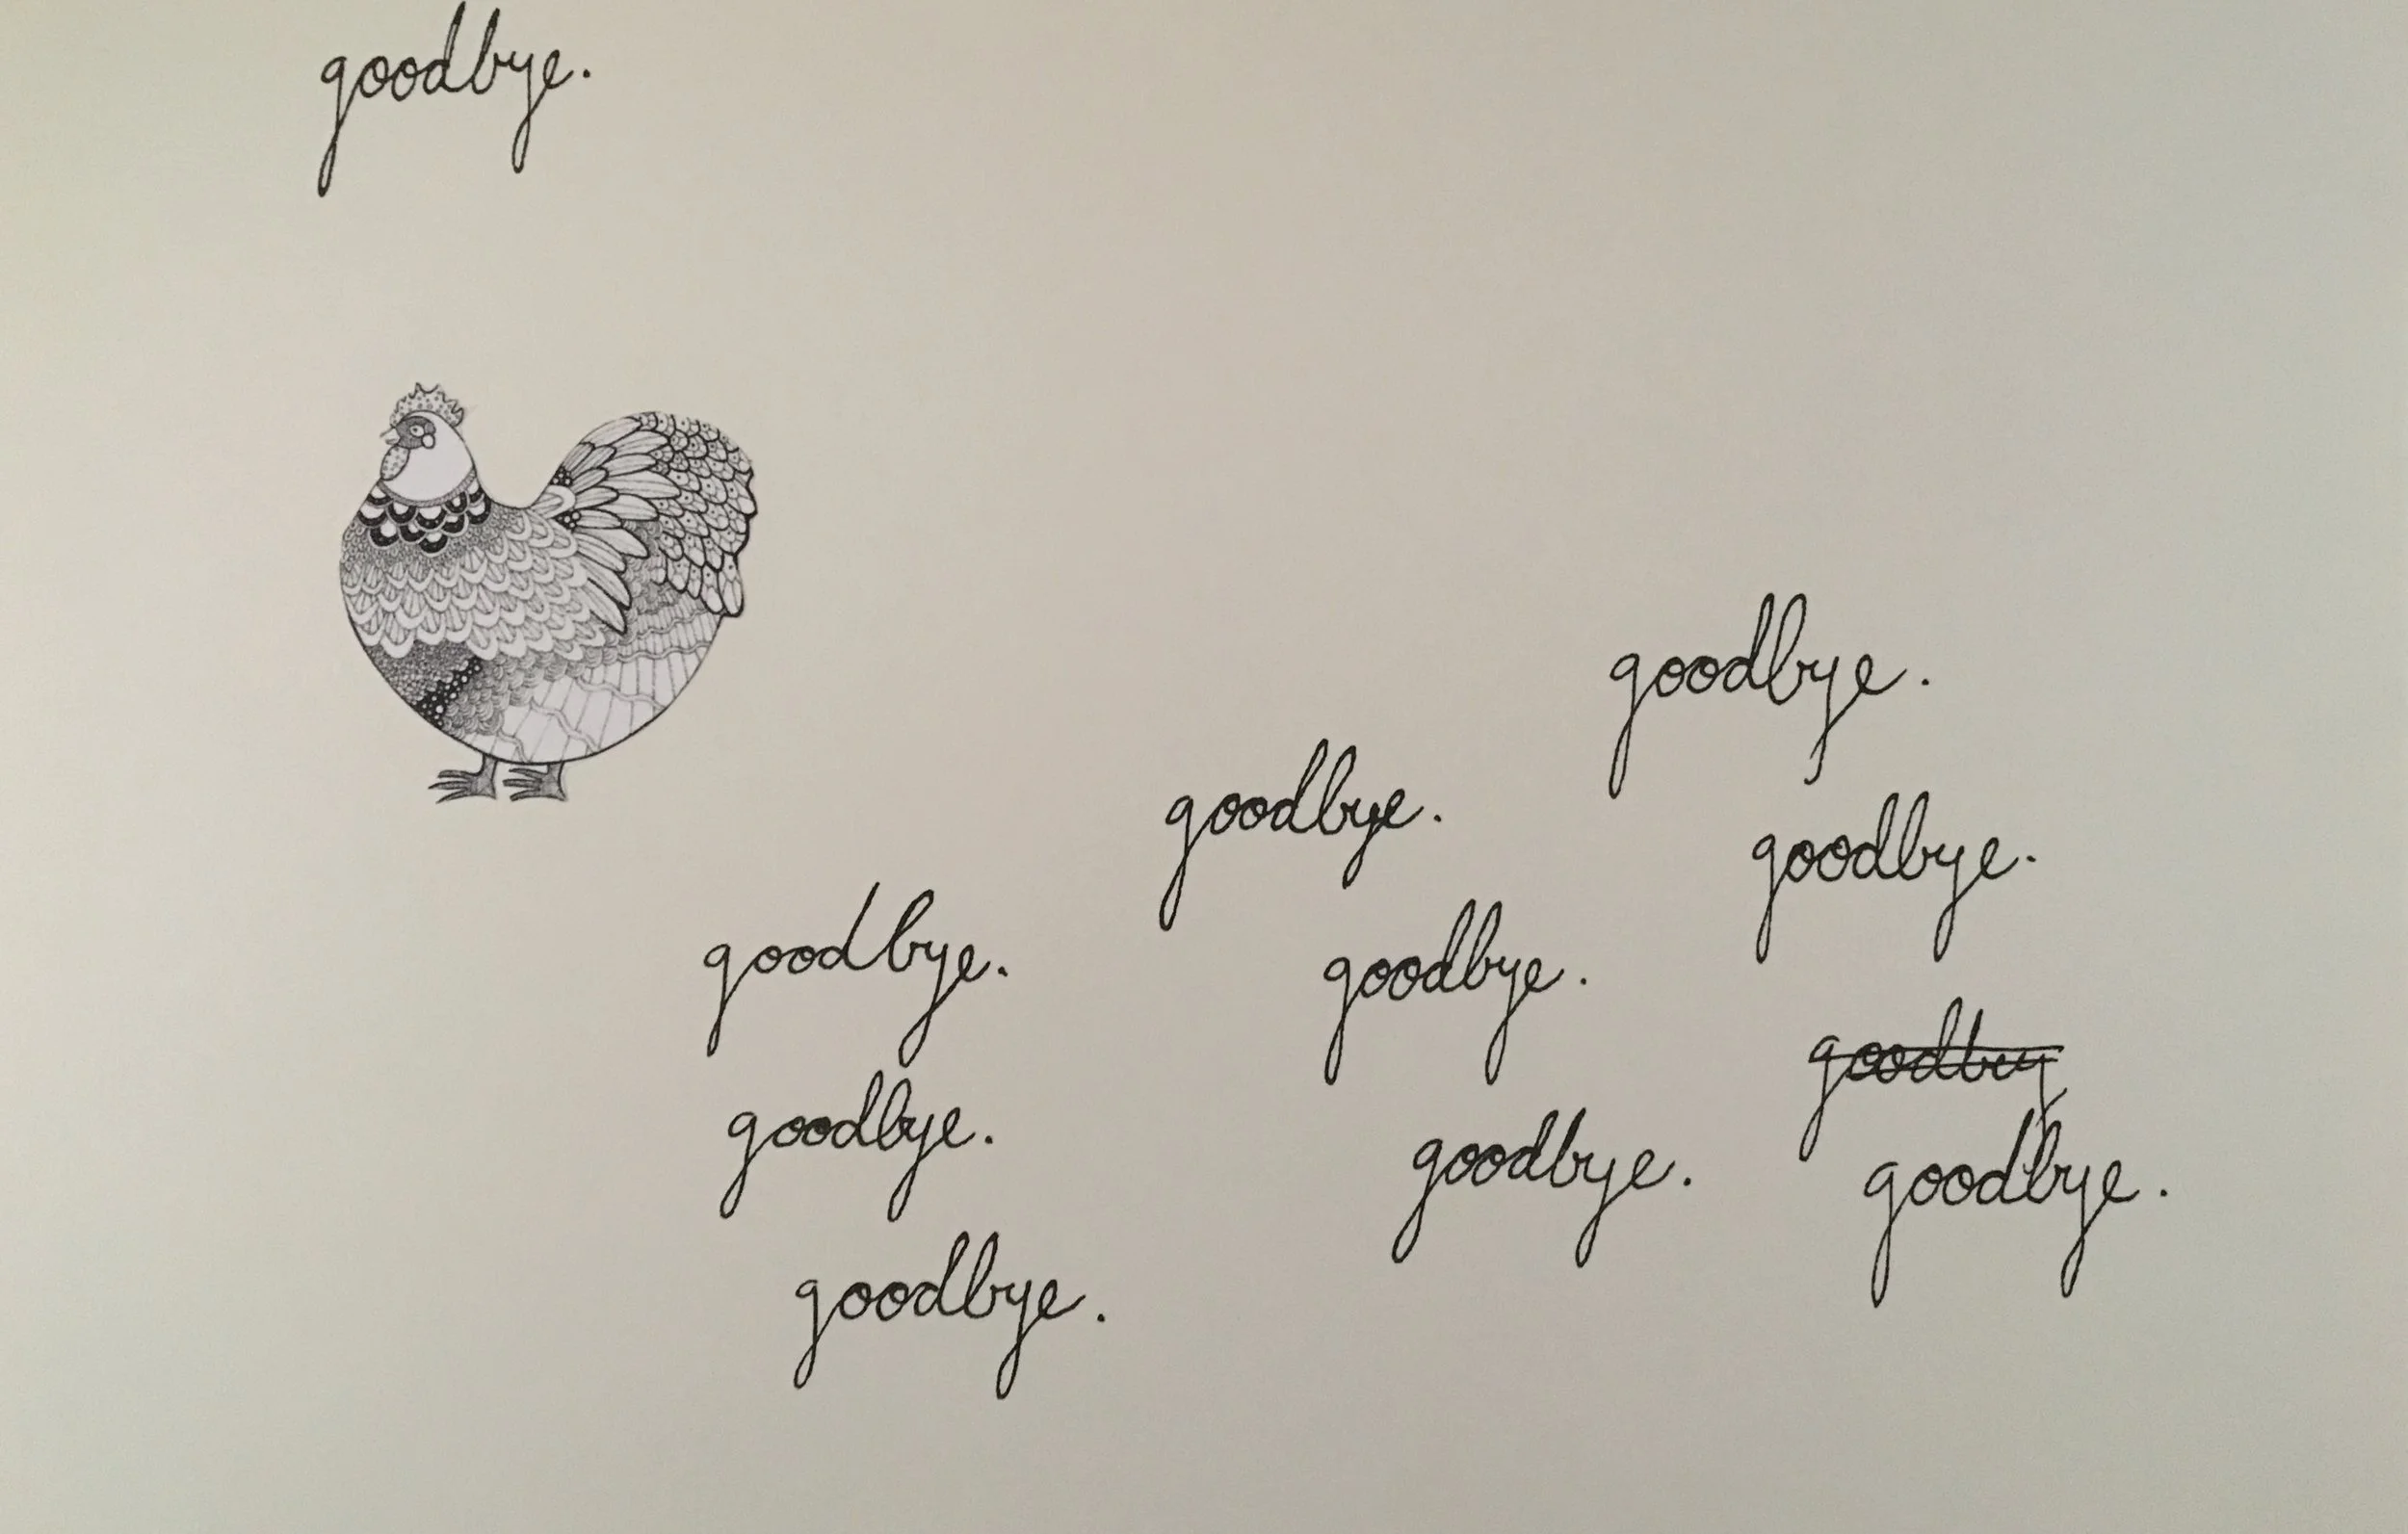 goodbye.
goodbye.
goodbye.
goodbye.
goodbye.
goodbye.
goodbye.
goodbye.
goodbye.
goodbuy
goodbye.